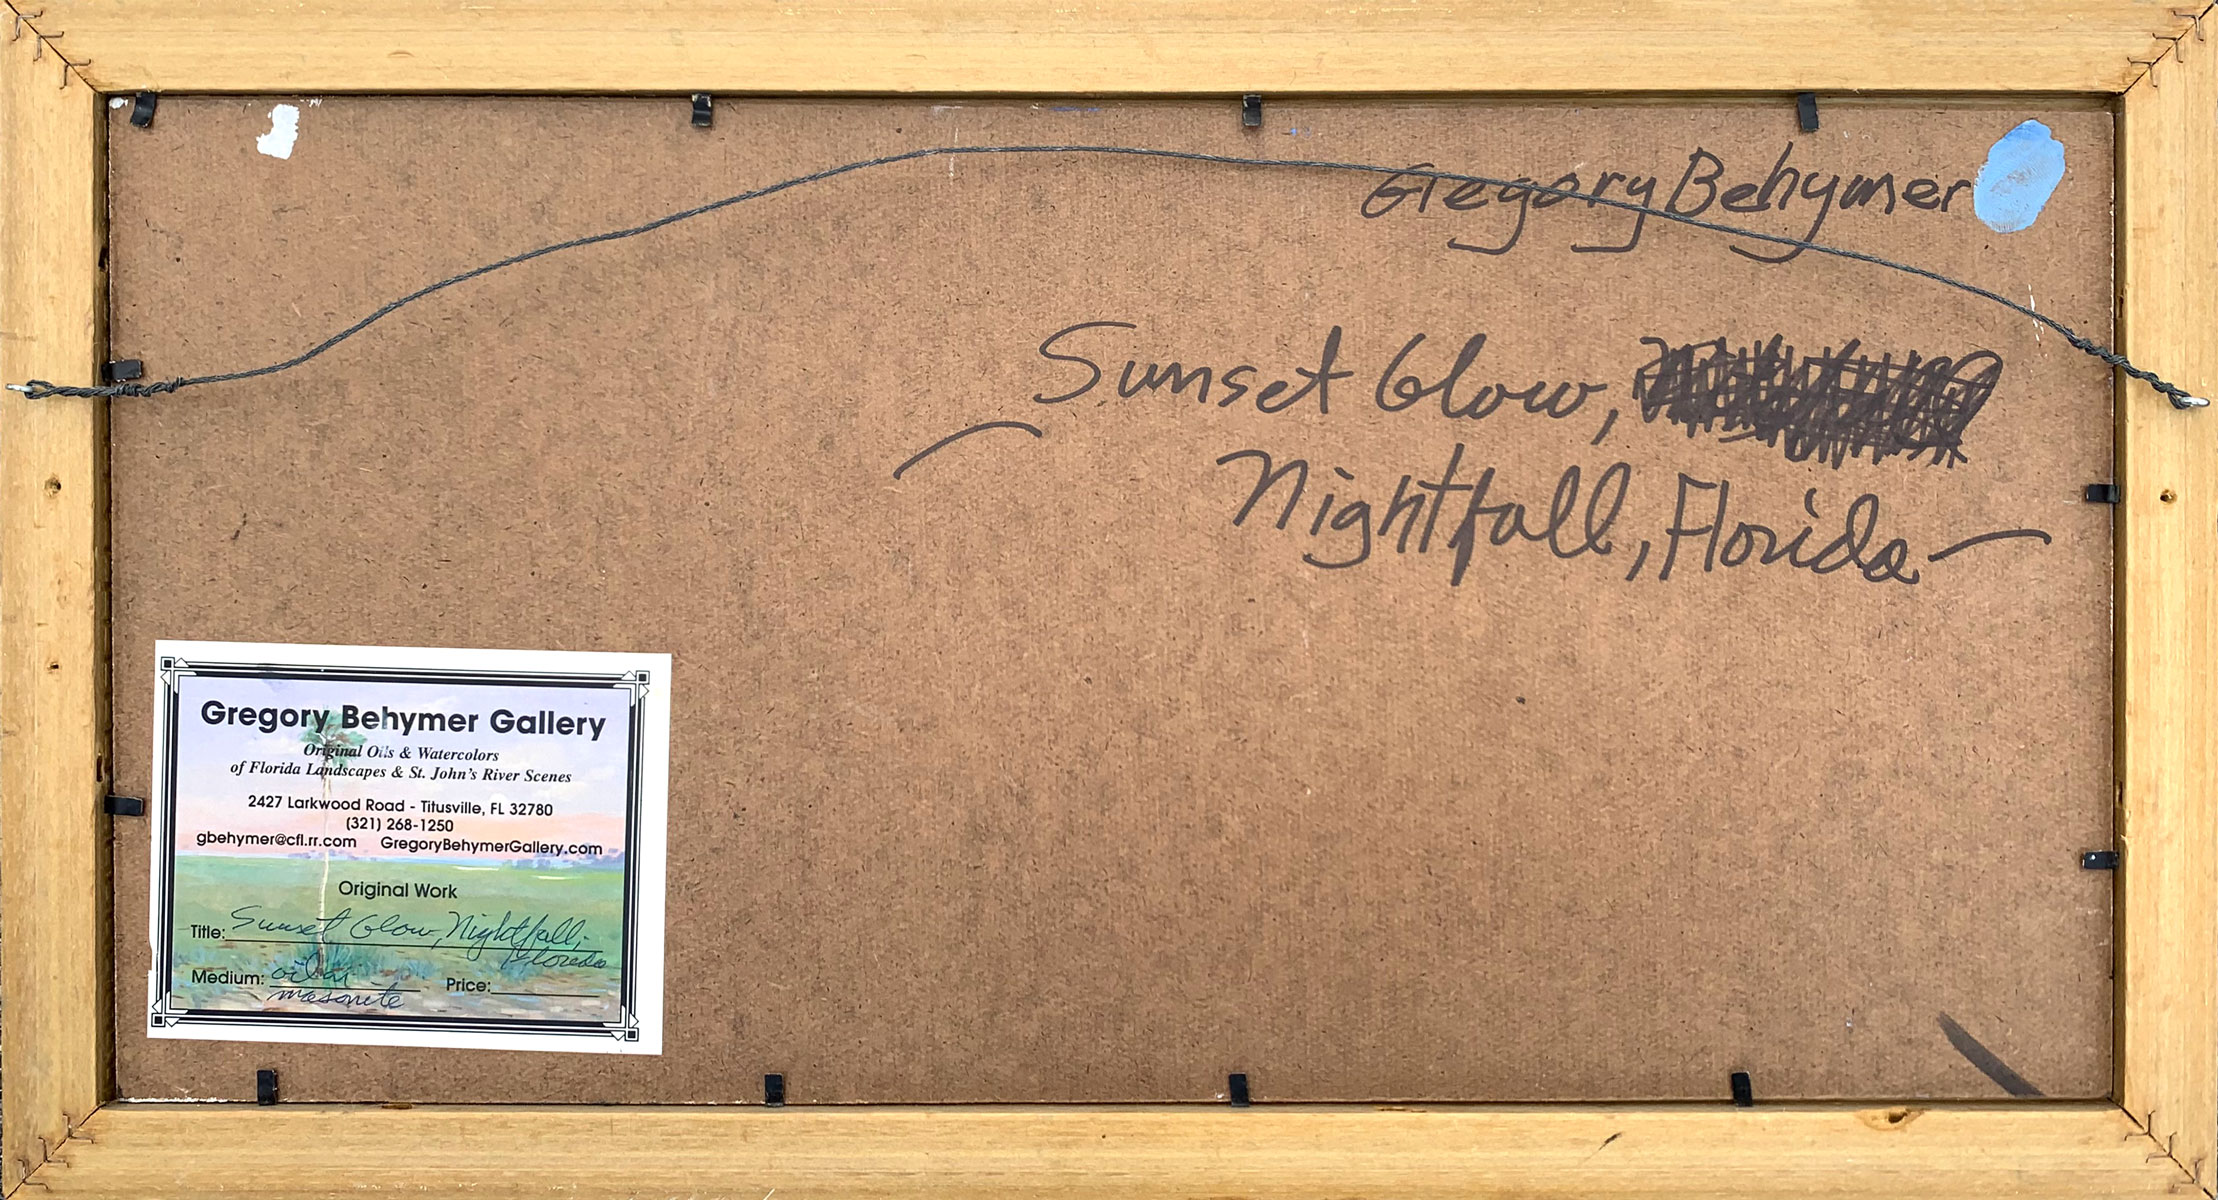 Gregory Behymer
Sunset Glow,
Nightfall, Florida
Gregory Behymer Gallery
Original Oils & Watercolors
of Florida Landscapes & St. John's River Scenes
2427 Larkwood Road - Titusville, FL 32780
(321) 268-1250
gbehymer@cfl.rr.com GregoryBehymerGallery.com
Original Work
Title: Sunset Glow, Nightfall,
Florida
Medium: oil on Price:
masonite